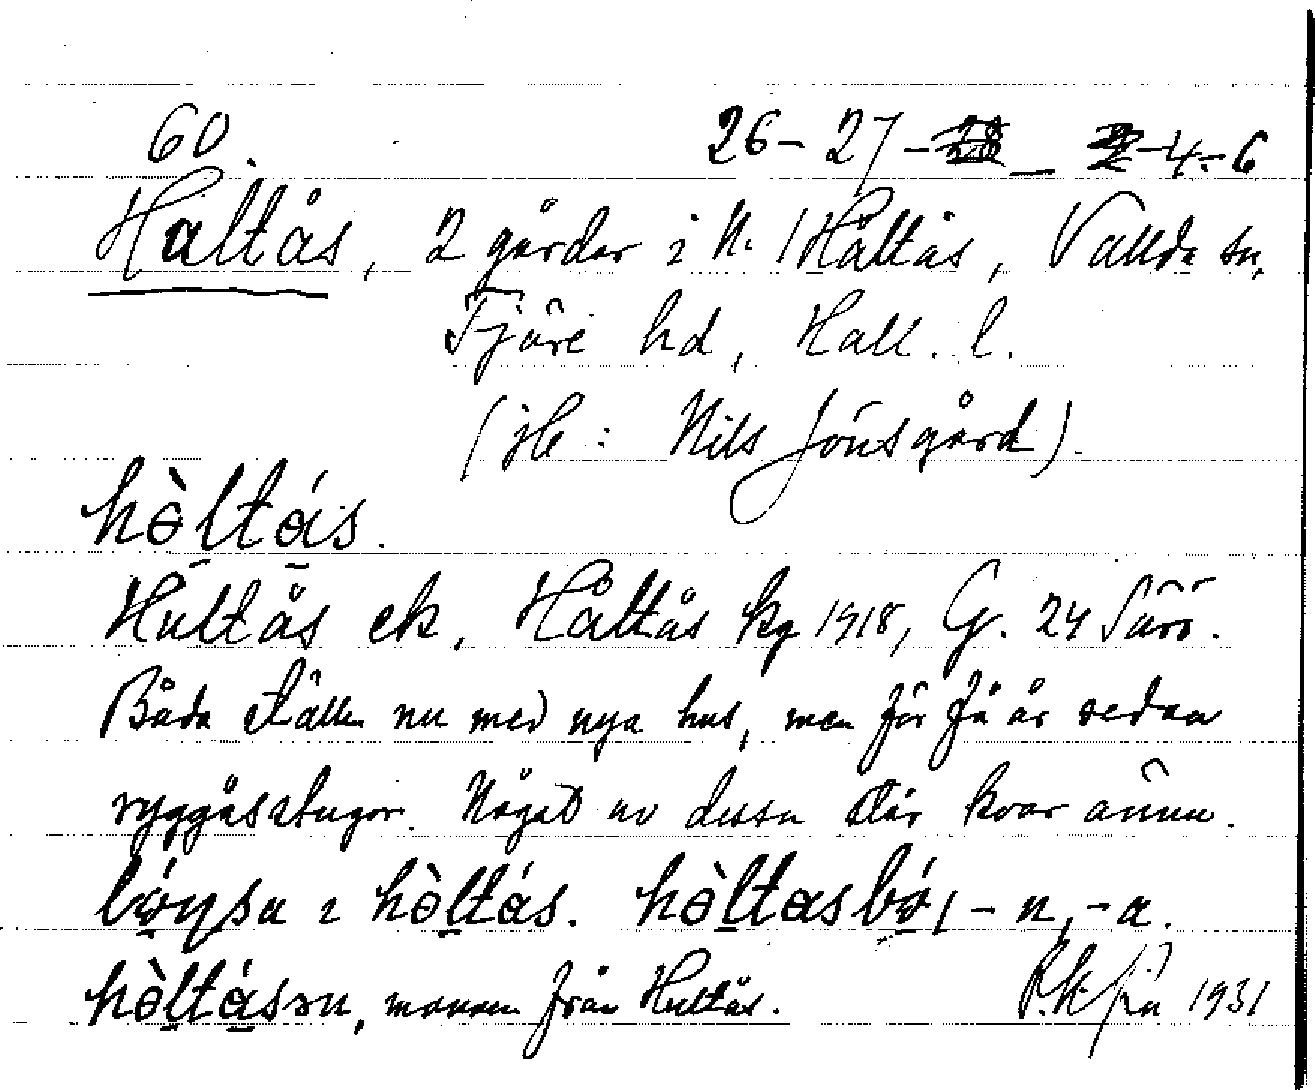 60. 26-27- 4-6
Hultås, 2 gårdar i N. Håltås, Vallda sn,
Fjäre hd, Hall. l.
Nils Jönsgård).
hòltás.
Hultås ek, Håltås kg 1918, G. 24 Särö.
Båda ställen nu med nya hus, men för få år sedan
ryggåsstugor. Något av dessa står kvar ännu.
i hòltás. hòltasbó, -n, -a.
hòltásən, mannen från Hultås. 1931